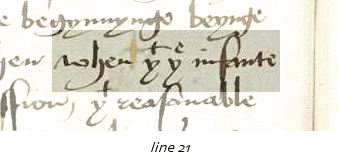 begynnynge beynge
when yͭ yͤ infante
ssion, yͭ reasonable
line 21